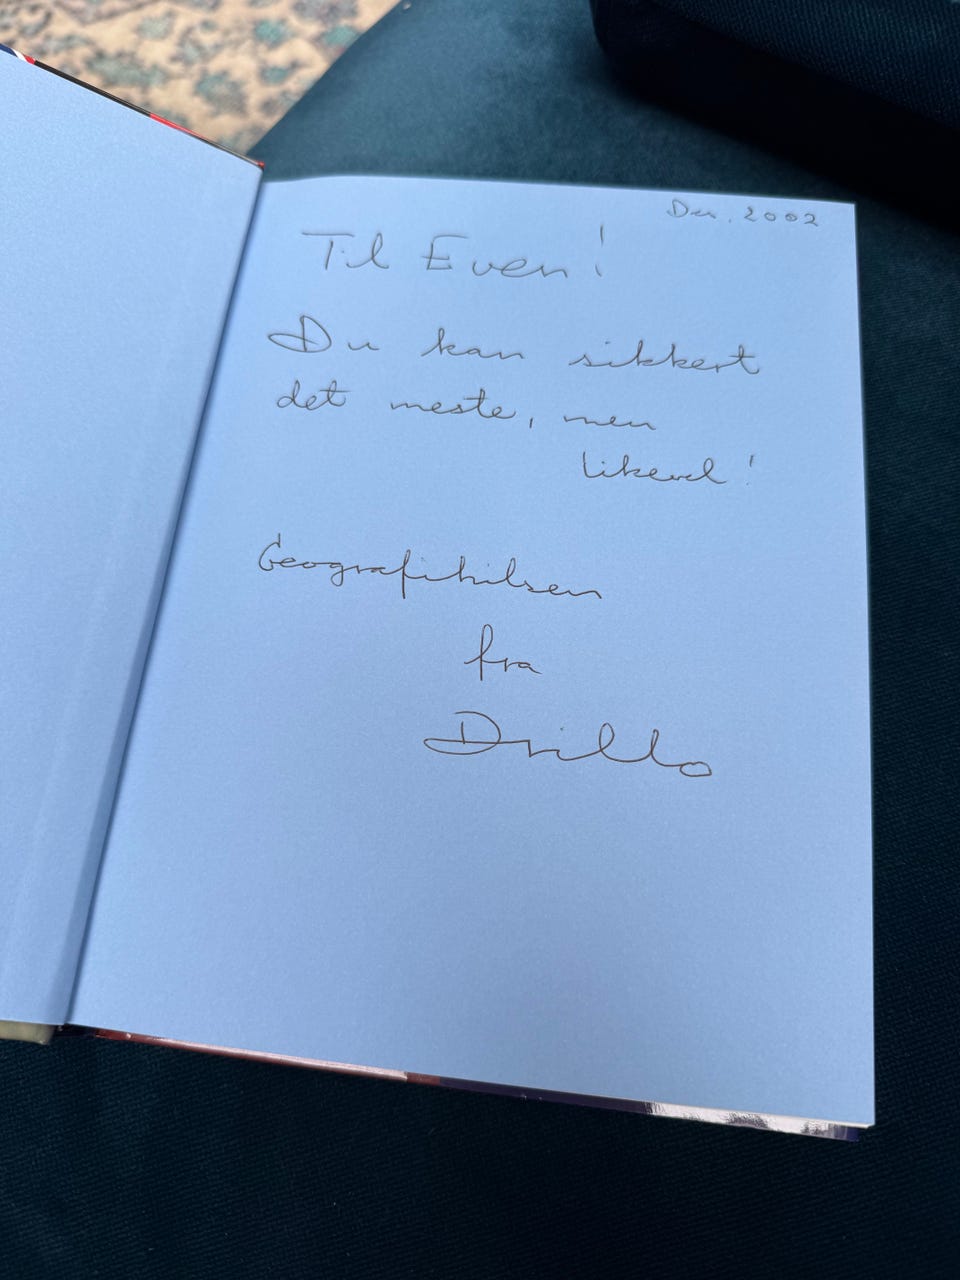 Des. 2002
Til Even!
Du kan sikkert
det meste, men
likevel!
Geografihilsen
fra
Drillo